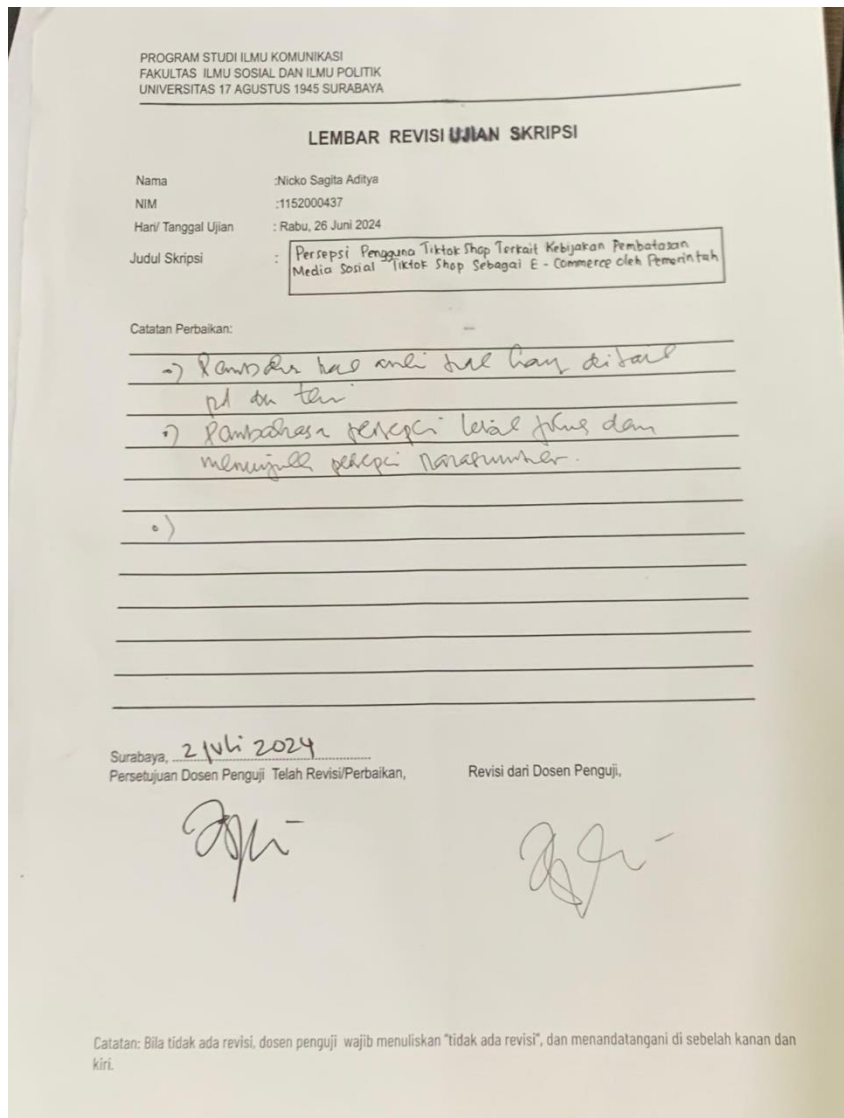 PROGRAM STUDI ILMU KOMUNIKASI
FAKULTAS ILMU SOSIAL DAN ILMU POLITIK
UNIVERSITAS 17 AGUSTUS 1945 SURABAYA
LEMBAR REVISI UJIAN SKRIPSI
Nama :Nicko Sagita Aditya
NIM :1152000437
Hari/ Tanggal Ujian : Rabu, 26 Juni 2024
Judul Skripsi : Persepsi Pengguna Tiktok Shop Terkait Kebijakan Pembatasan
Media Sosial Tiktok Shop Sebagai E - Commerce oleh Pemerintah
Catatan Perbaikan:
persepsi dan
persepsi narasumber.
Surabaya, 2 Juli 2024
Persetujuan Dosen Penguji Telah Revisi/Perbaikan,
Revisi dari Dosen Penguji,
Catatan: Bila tidak ada revisi, dosen penguji wajib menuliskan "tidak ada revisi", dan menandatangani di sebelah kanan dan
kiri.